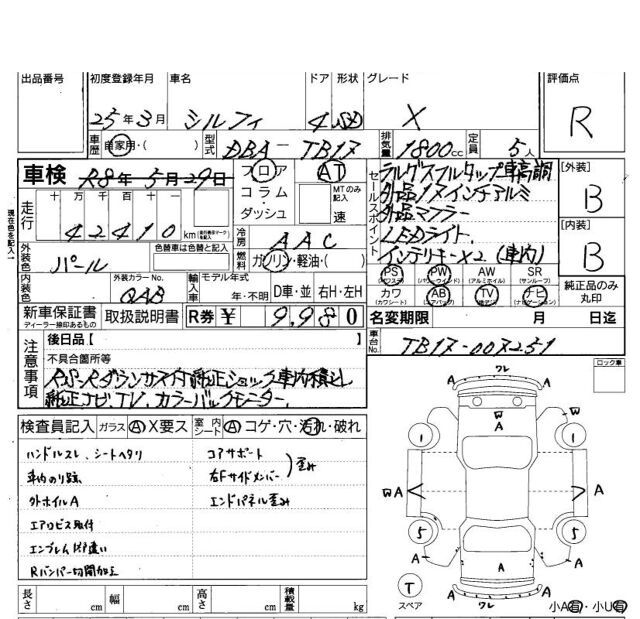 出品番号 初度登録年月 車名 ドア 形状 グレード 評価点
25年3月 シルフィ 4 SD X R
車歴 自家用・( ) 型式 DBA-TB17 排気量 1800cc 定員 5人
車検 R8年5月29日 フロア AT
コラム・ダッシュ MTのみ記入 速
走行 十万 千百十一
42410 km
セールスポイント
ラルグスフルタップ車高調
外品17インチアルミ
外品マフラー
LEDライト
インテリキーX2 (車内)
[外装] B
[内装] B
現在色を記入
外装色 パール 色替車は色替と記入
冷房 AAC
燃料 ガソリン・軽油・( )
外装カラーNo. QAB
輸入車 モデル年式 年・不明 D車・並 右H・左H
PS PW AW SR
(パワステ) (パワーウインド) (アルミホイル) (サンルーフ)
カワ AB TV ナビ
(カワシート) (エアバッグ) (テレビ) (ナビゲーション)
純正品のみ丸印
新車保証書 取扱説明書 R券 ¥ 9,980
ディーラー捺印あるもの
名変期限 月 日迄
車台No. TB17-007251
注意事項
後日品【 】
不具合箇所等
純正ナビTV.カラーバックモニター.
ロック車
検査員記入 ガラス A X要ス 室内シート A コゲ・穴・汚れ・破れ
ハンドルスレ、シートヘタリ コアサポート
車内のり跡 右Fサイドメンバー 歪み
外ホイルA エンドパネル歪み
エアロビス取付
エンブレム位置違い
Rバンパー切開加工
長さ cm 幅 cm 高さ cm 積載量 kg
ワレ
A
W W
A A
1 1
A A
W A A
5 5
A A
A
T
スペア
A A
ワレ
小A有・小U有